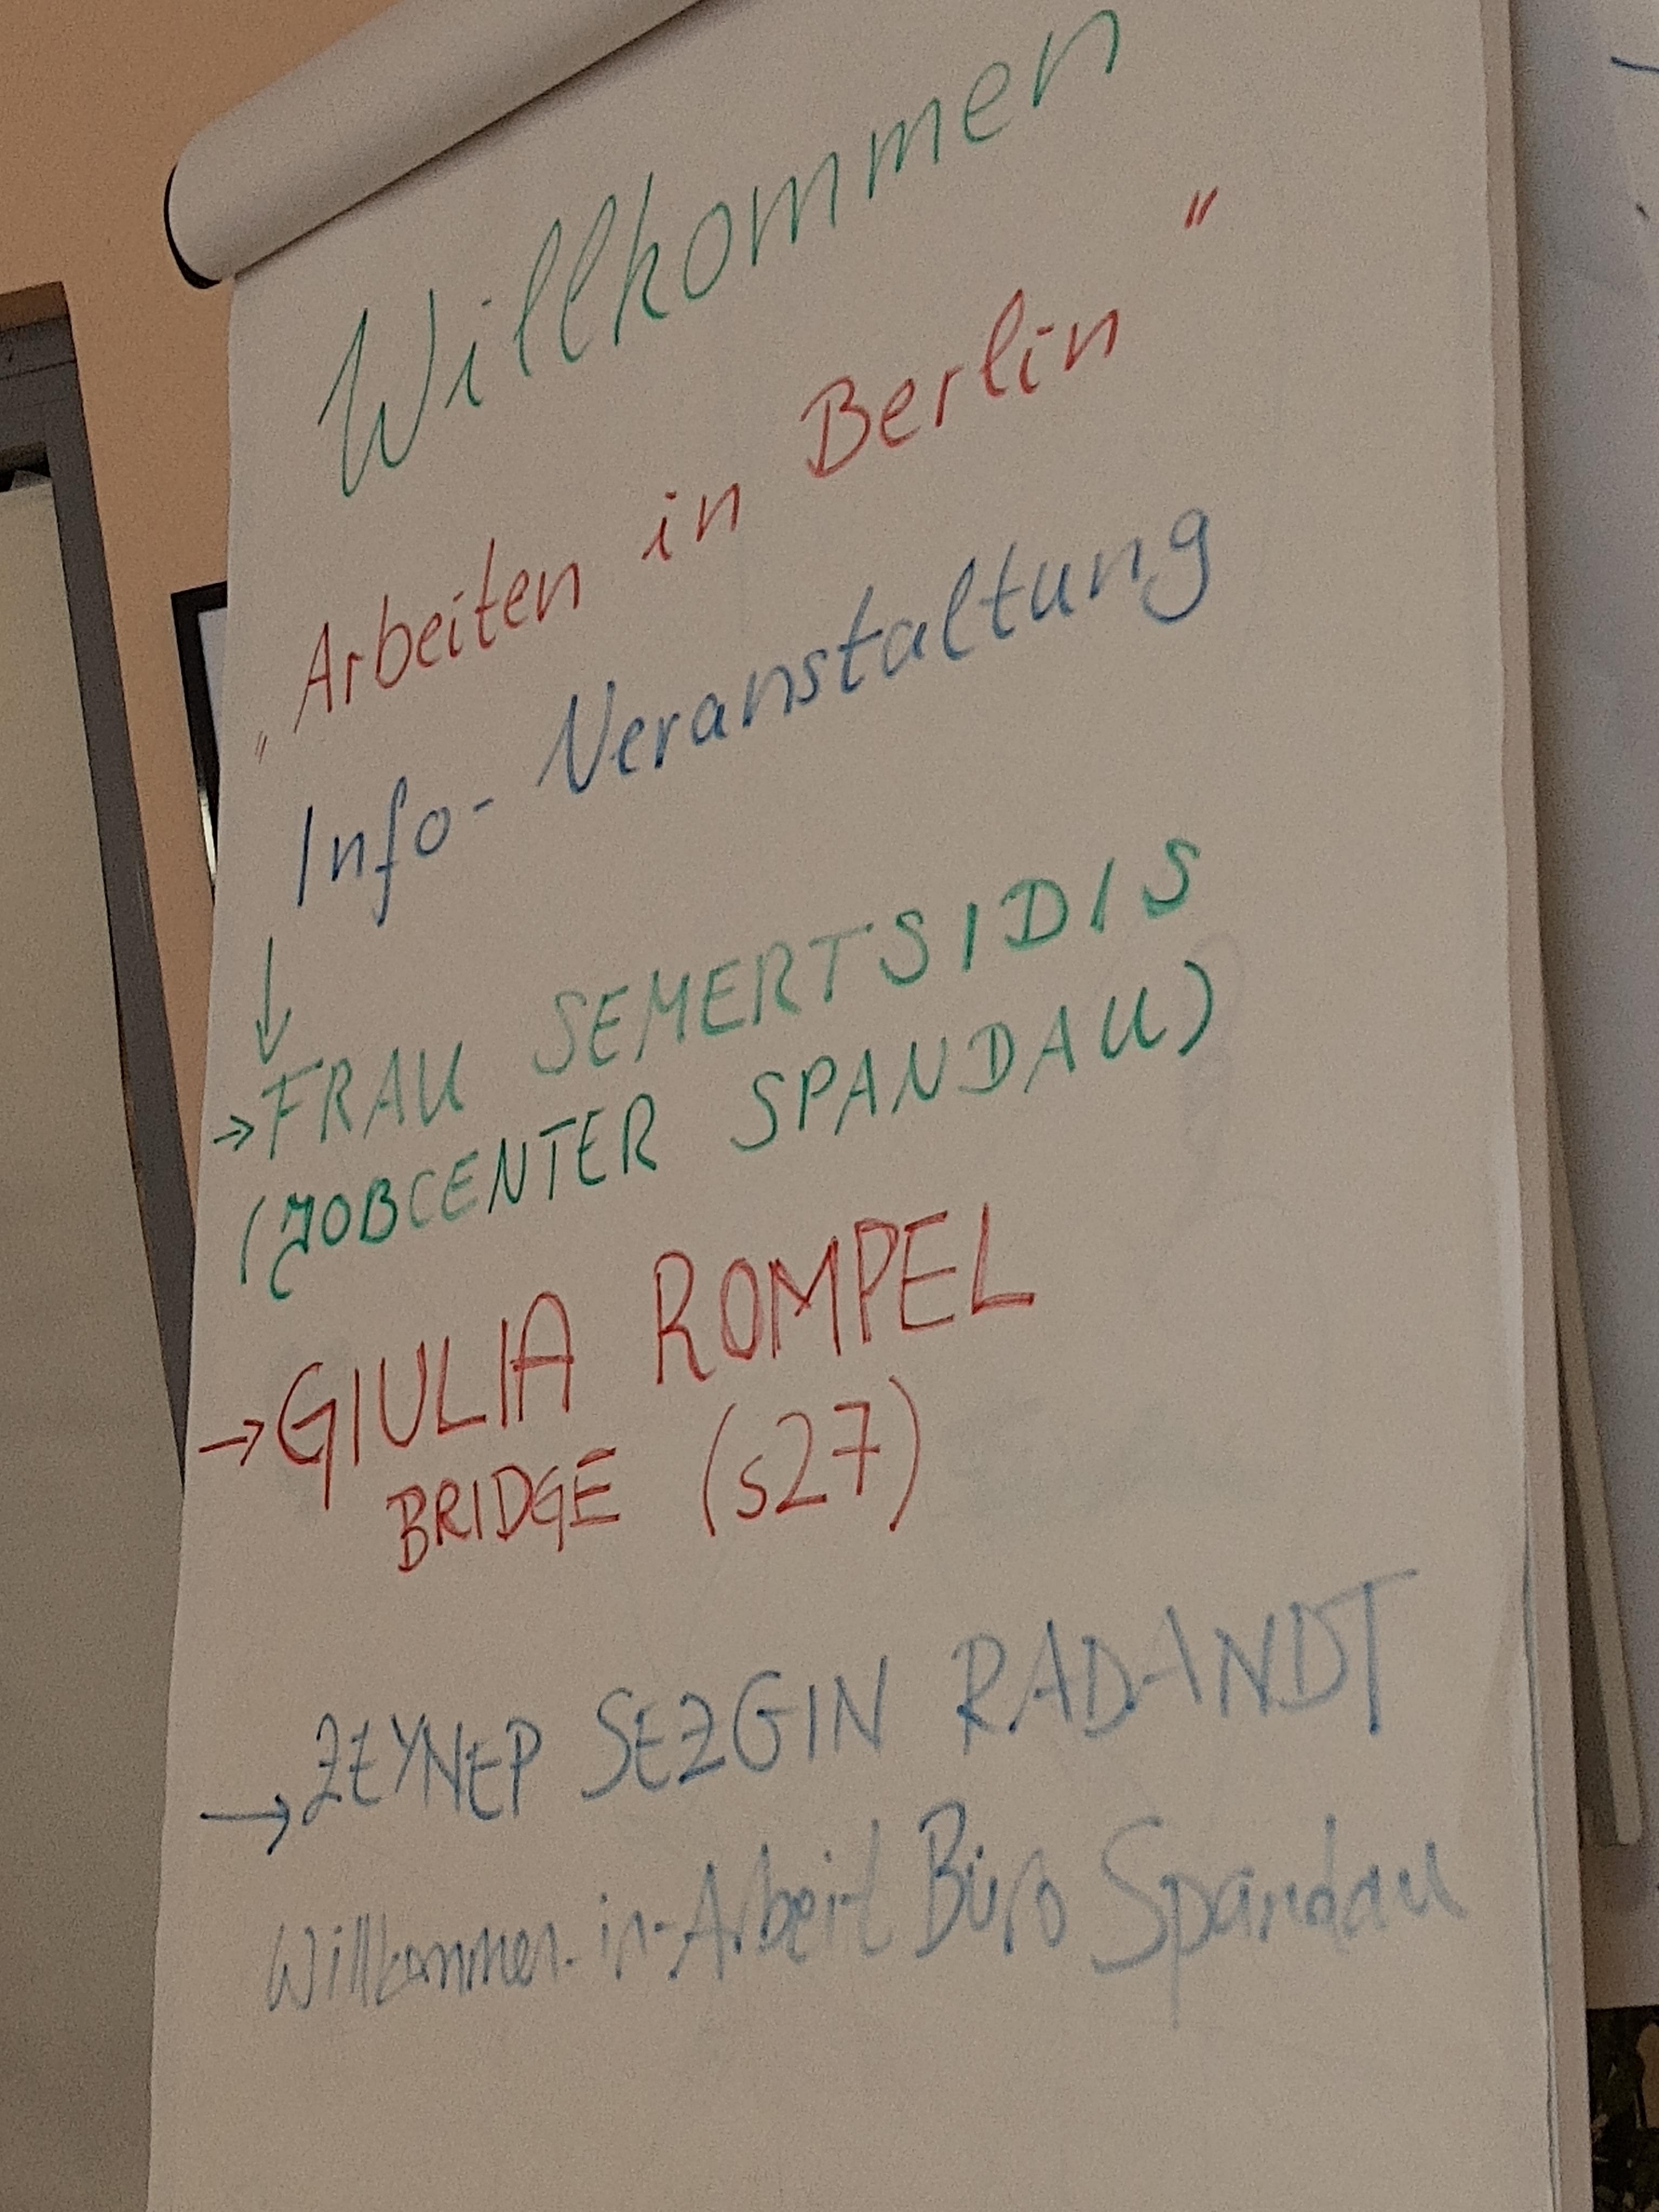 Willkommen
„Arbeiten in Berlin"
Info-Veranstaltung
↓
→ FRAU SEMERTSIDIS
(JOBCENTER SPANDAU)
→ GIULIA ROMPEL
BRIDGE (s27)
→ ZEYNEP SEZGIN RADANDT
Willkommen-in-Arbeit Büro Spandau